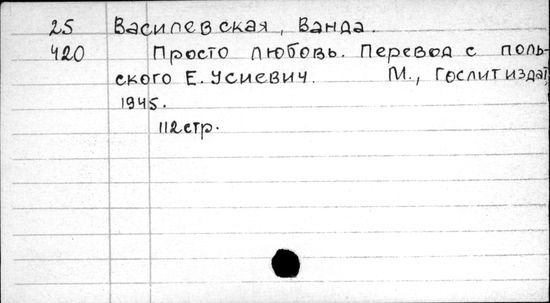 25 Василевская, Ванда.
420 Просто любовь. Перевод с поль-
ского Е. Усиевич. М., Гослитиздат,
1945.
112 стр.